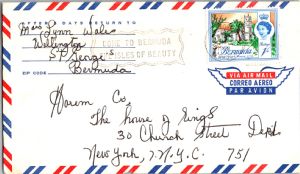 AFTER 5 DAYS RETURN TO
Lynn Wales
Wellington
St. George's
Bermuda
ZIP CODE
COME TO BERMUDA
ISLES OF BEAUTY
Bermuda
1/-
VIA AIR MAIL
CORREO AEREO
PAR AVION
Co
The House of Rings
30 Church Street Dept
New York, N.Y.C. 751